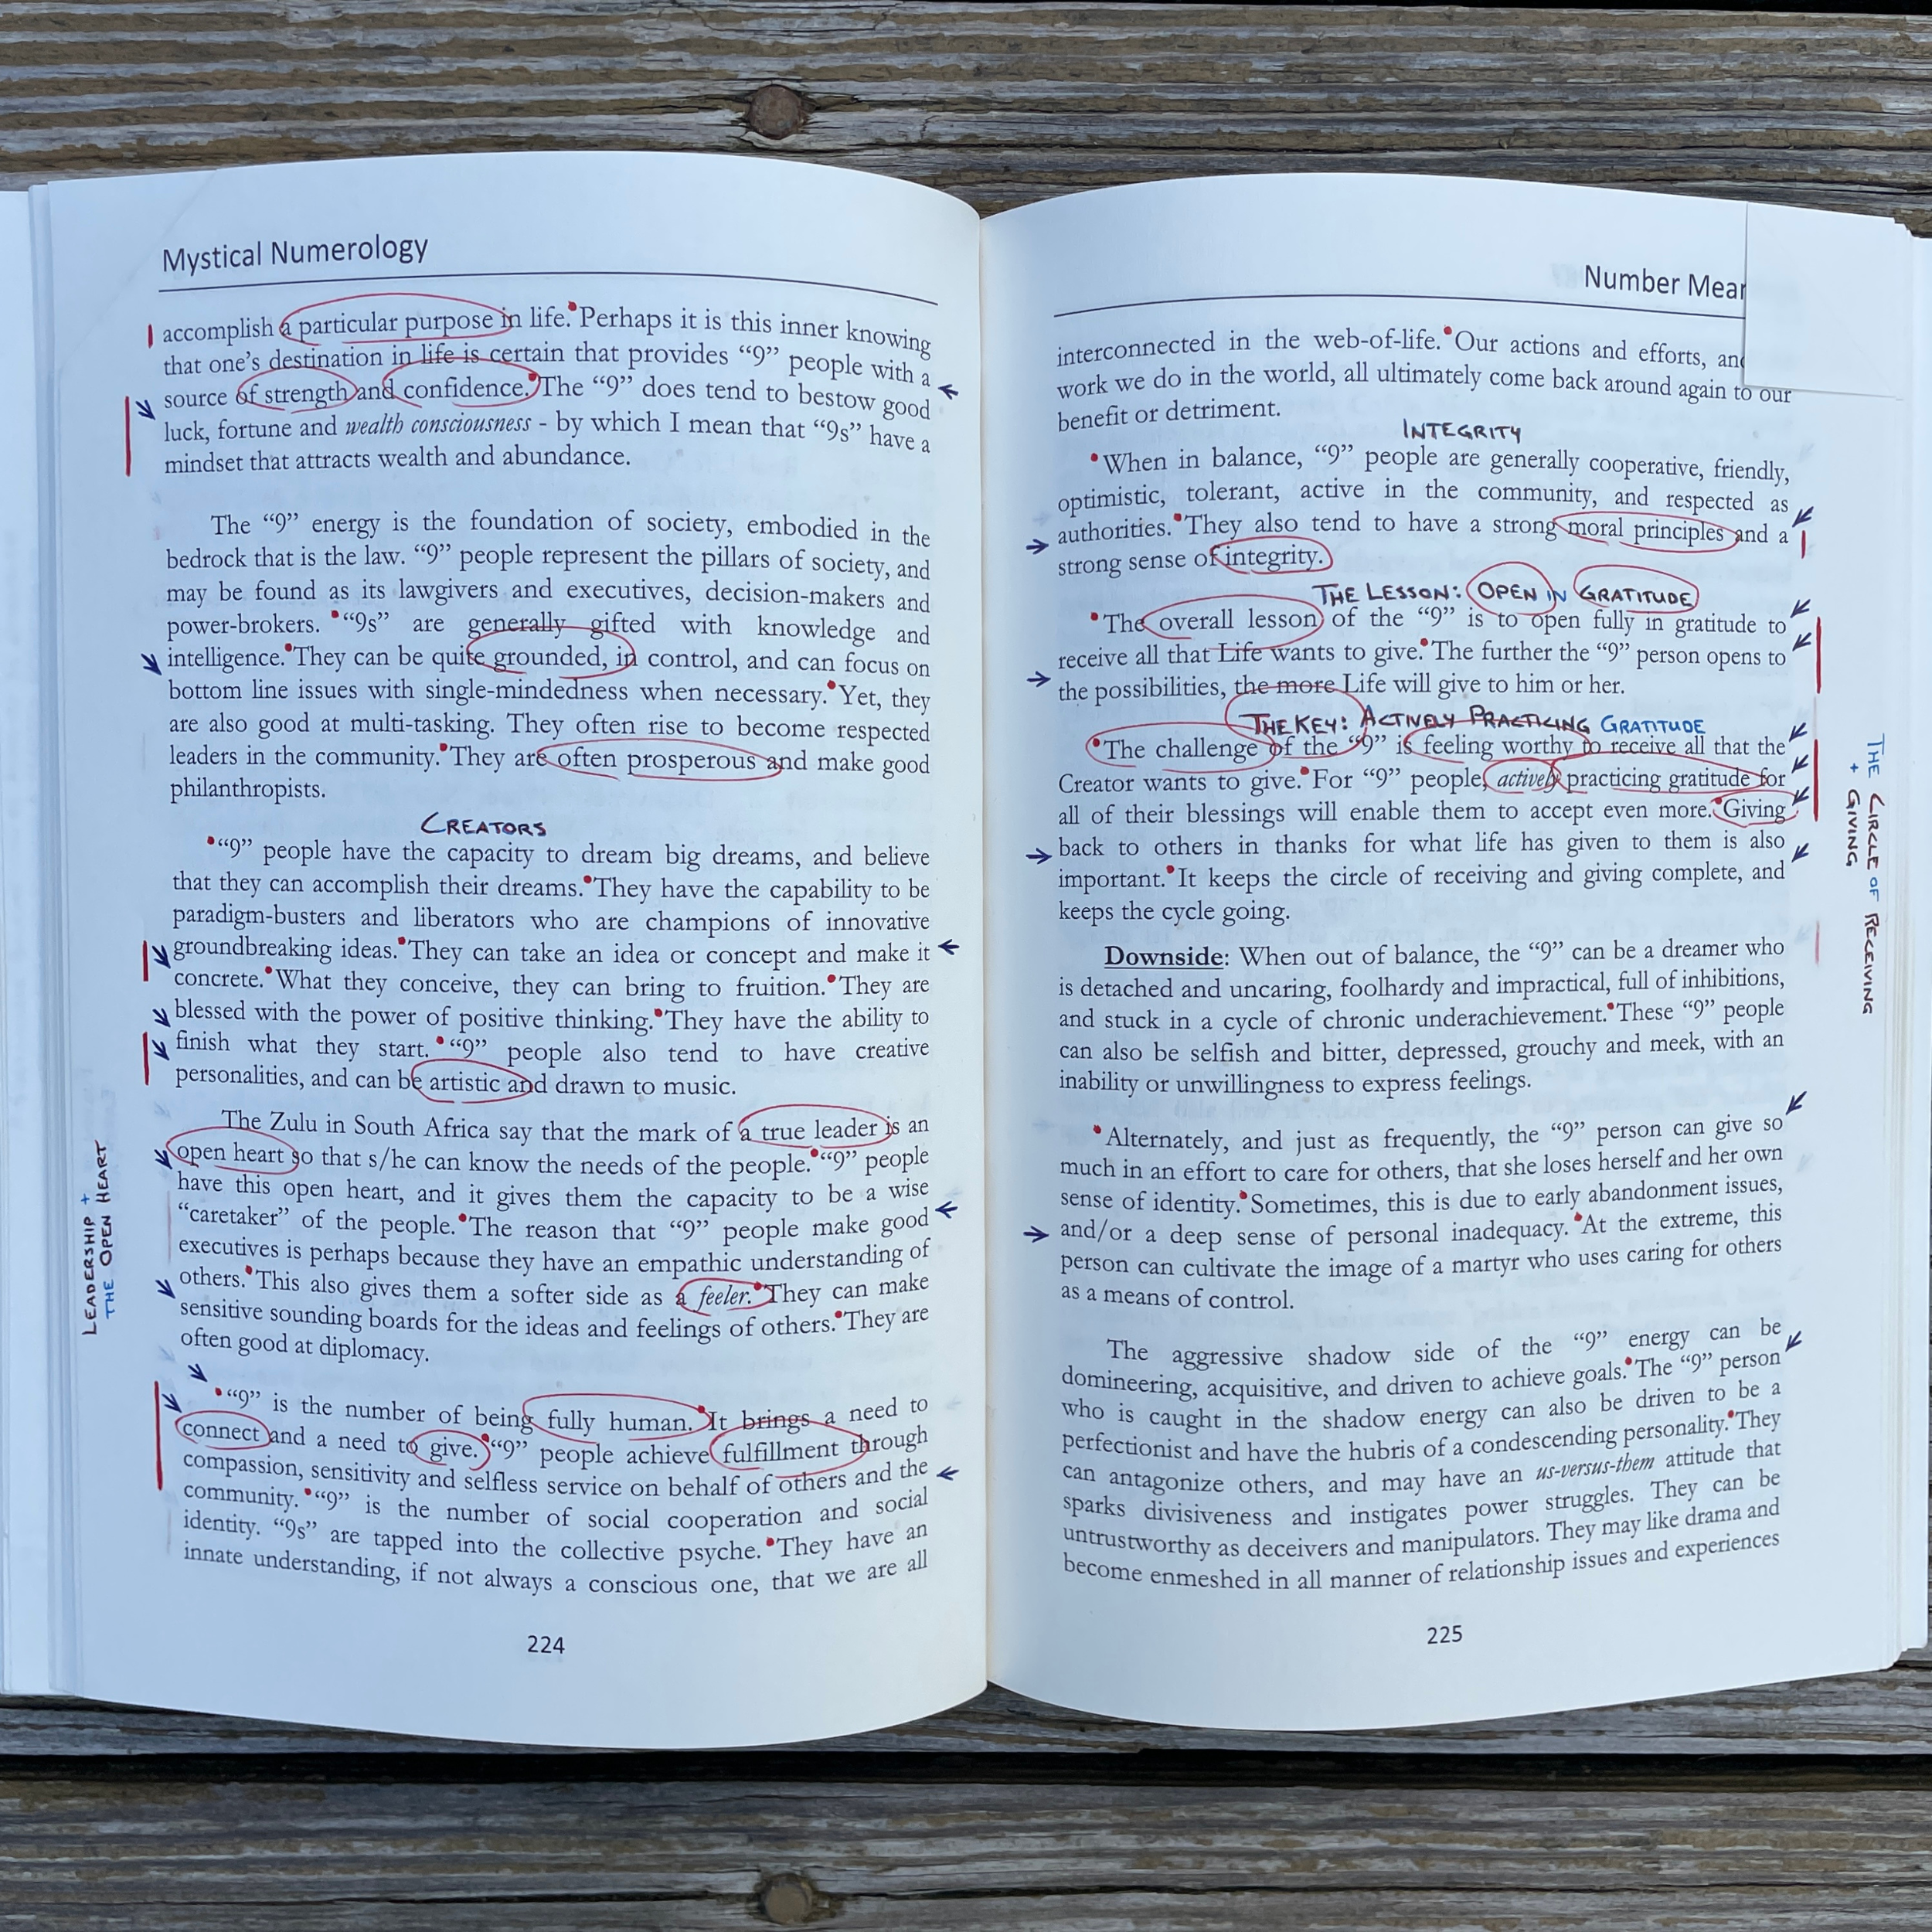 Mystical Numerology
accomplish a particular purpose in life. Perhaps it is this inner knowing
that one's destination in life is certain that provides “9” people with a
source of strength and confidence. The “9” does tend to bestow good
luck, fortune and wealth consciousness - by which I mean that “9s” have a
mindset that attracts wealth and abundance.
The “9” energy is the foundation of society, embodied in the
bedrock that is the law. “9” people represent the pillars of society, and
may be found as its lawgivers and executives, decision-makers and
power-brokers. “9s” are generally gifted with knowledge and
intelligence. They can be quite grounded, in control, and can focus on
bottom line issues with single-mindedness when necessary. Yet, they
are also good at multi-tasking. They often rise to become respected
leaders in the community. They are often prosperous and make good
philanthropists.
CREATORS
“9” people have the capacity to dream big dreams, and believe
that they can accomplish their dreams. They have the capability to be
paradigm-busters and liberators who are champions of innovative
groundbreaking ideas. They can take an idea or concept and make it
concrete. What they conceive, they can bring to fruition. They are
blessed with the power of positive thinking. They have the ability to
finish what they start. “9” people also tend to have creative
personalities, and can be artistic and drawn to music.
The Zulu in South Africa say that the mark of a true leader is an
open heart so that s/he can know the needs of the people. “9” people
have this open heart, and it gives them the capacity to be a wise
“caretaker” of the people. The reason that “9” people make good
executives is perhaps because they have an empathic understanding of
others. This also gives them a softer side as a feeler. They can make
sensitive sounding boards for the ideas and feelings of others. They are
often good at diplomacy.
LEADERSHIP +
THE OPEN HEART
“9” is the number of being fully human. It brings a need to
connect and a need to give. “9” people achieve fulfillment through
compassion, sensitivity and selfless service on behalf of others and the
community. “9” is the number of social cooperation and social
identity. “9s” are tapped into the collective psyche. They have an
innate understanding, if not always a conscious one, that we are all
224
Number Mear
interconnected in the web-of-life. Our actions and efforts, and
work we do in the world, all ultimately come back around again to our
benefit or detriment.
INTEGRITY
When in balance, “9” people are generally cooperative, friendly,
optimistic, tolerant, active in the community, and respected as
authorities. They also tend to have a strong moral principles and a
strong sense of integrity.
THE LESSON: OPEN IN GRATITUDE
The overall lesson of the “9” is to open fully in gratitude to
receive all that Life wants to give. The further the “9” person opens to
the possibilities, the more Life will give to him or her.
THE KEY: ACTIVELY PRACTICING GRATITUDE
The challenge of the “9” is feeling worthy to receive all that the
Creator wants to give. For “9” people, actively practicing gratitude for
all of their blessings will enable them to accept even more. Giving
back to others in thanks for what life has given to them is also
important. It keeps the circle of receiving and giving complete, and
keeps the cycle going.
THE CIRCLE OF RECEIVING
+ GIVING
Downside: When out of balance, the “9” can be a dreamer who
is detached and uncaring, foolhardy and impractical, full of inhibitions,
and stuck in a cycle of chronic underachievement. These “9” people
can also be selfish and bitter, depressed, grouchy and meek, with an
inability or unwillingness to express feelings.
Alternately, and just as frequently, the “9” person can give so
much in an effort to care for others, that she loses herself and her own
sense of identity. Sometimes, this is due to early abandonment issues,
and/or a deep sense of personal inadequacy. At the extreme, this
person can cultivate the image of a martyr who uses caring for others
as a means of control.
The aggressive shadow side of the “9” energy can be
domineering, acquisitive, and driven to achieve goals. The “9” person
who is caught in the shadow energy can also be driven to be a
perfectionist and have the hubris of a condescending personality. They
can antagonize others, and may have an us-versus-them attitude that
sparks divisiveness and instigates power struggles. They can be
untrustworthy as deceivers and manipulators. They may like drama and
become enmeshed in all manner of relationship issues and experiences
225